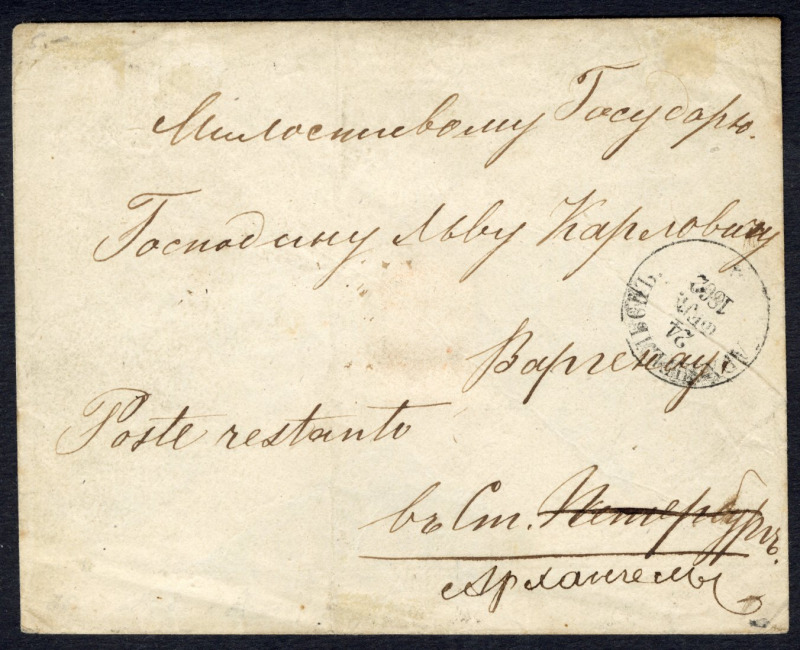 Милостивому Государю.
Господину Льву Карловичу
Варгенау
Poste restante
въ Ст. Петербургъ.
Архангельс
АРХАНГЕЛЬСКЪ.
24
1862